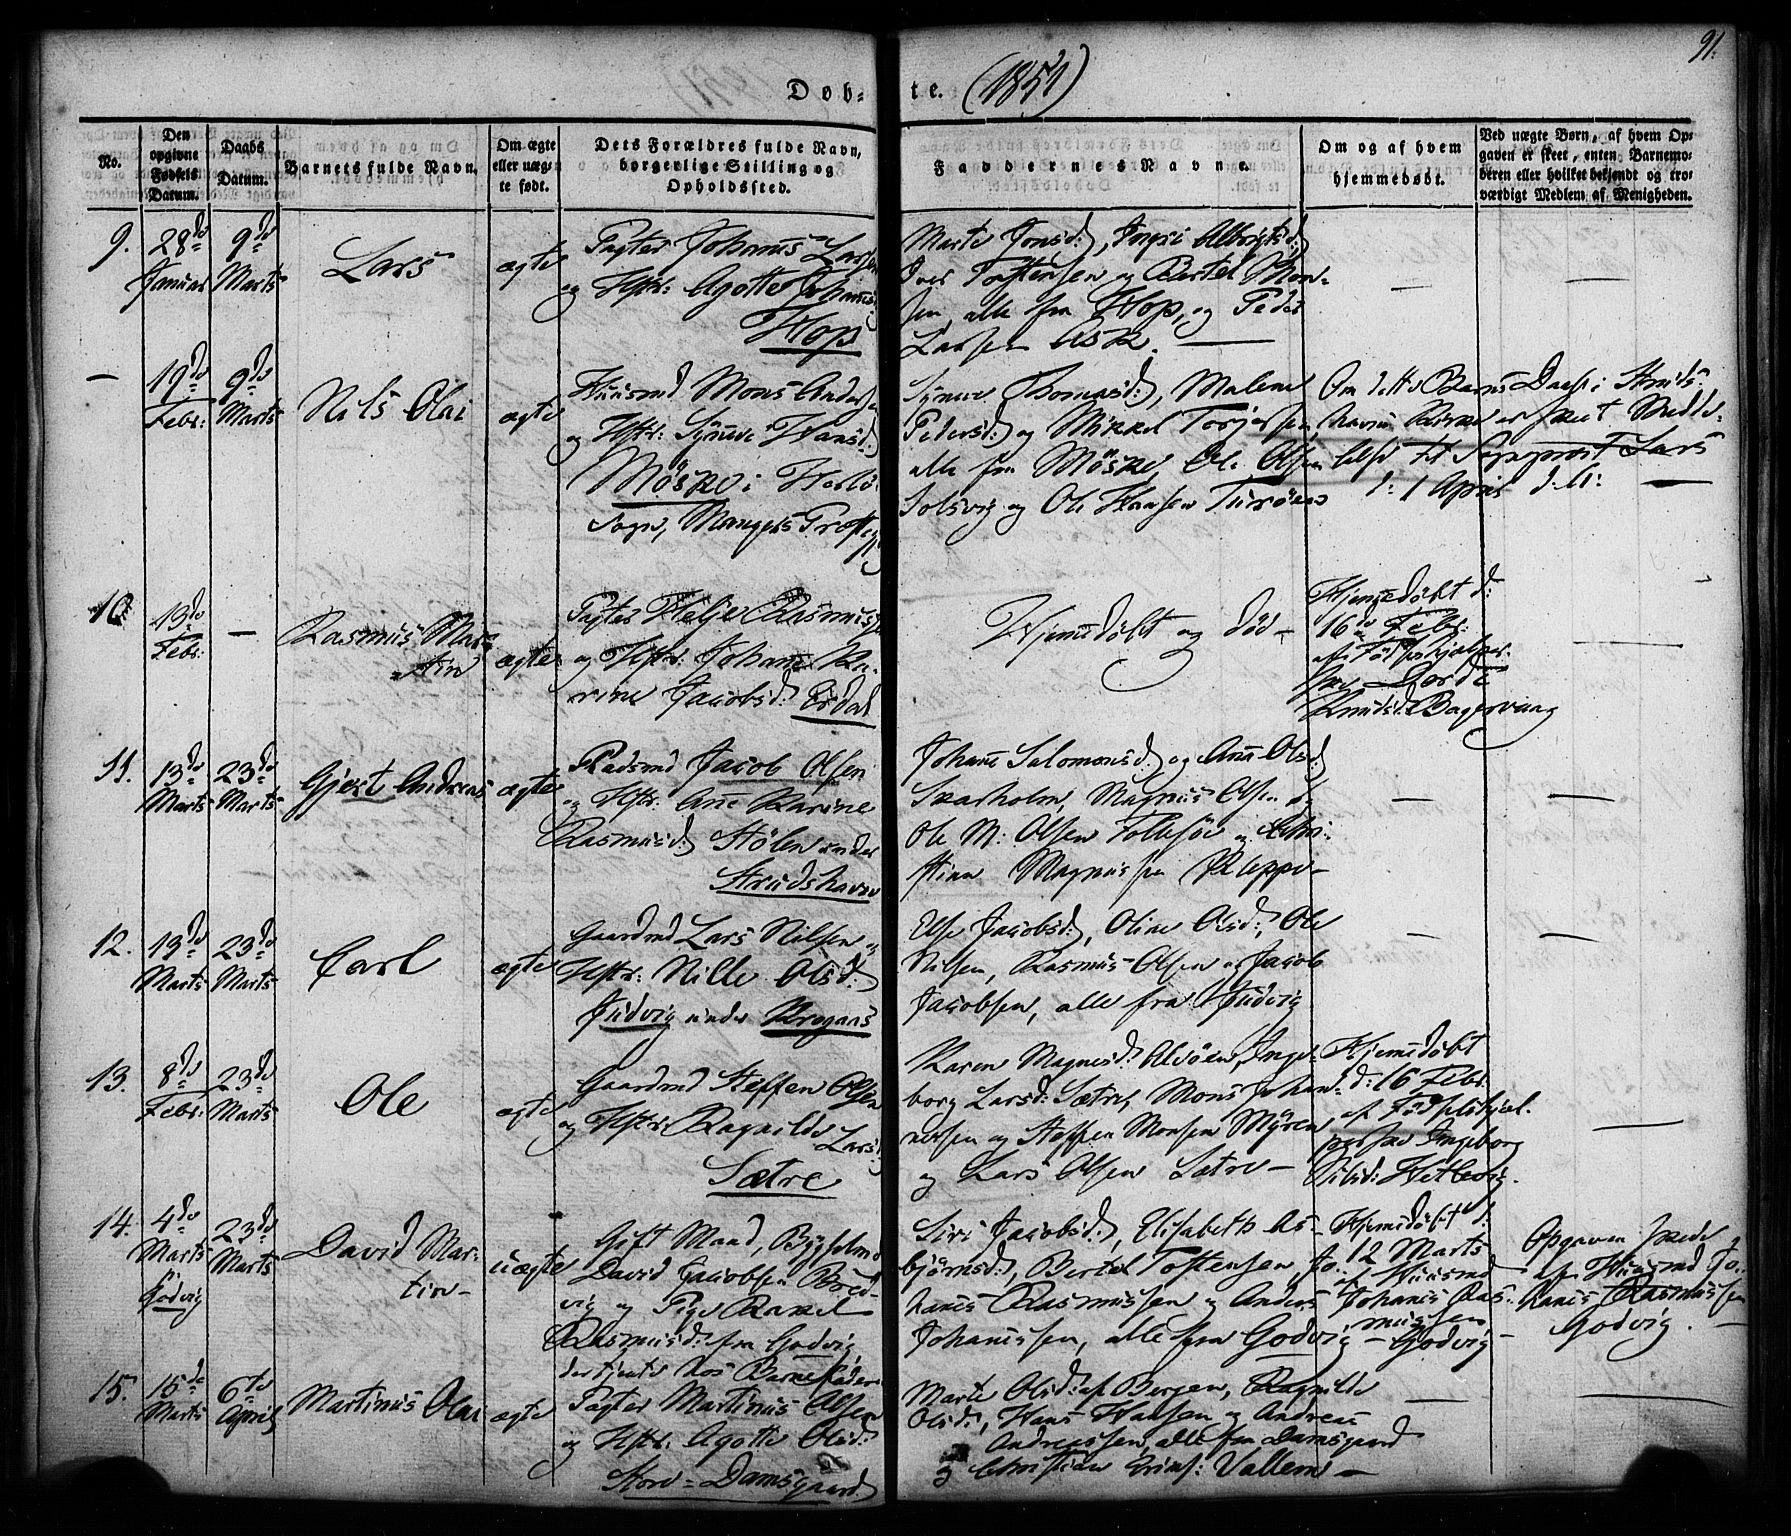 91.
Døb-
te.
(1851)
No.
Den opgivne Fødsels Datum.
Daabs Datum.
Barnets fulde Navn.
Om ægte eller uægte født.
Dets Forældres fulde Navn, borgerlige Stilling og Opholdssted.
Faddernes Navne.
Om og af hvem hjemmedøbt.
Ved uægte Børn, af hvem Opgaven er skeet, enten Barnemoderen eller hvilket bekjendt og troværdigt Medlem af Menigheden.
9.
28de Januar
9de Marts
Lars
ægte
Pagter Johannes Larsen
og Hstr: Agotte Johannesd:
Hop
Marte Jonsd:, Ingri
Iver Tostensen og Bertel Mon-
sen, alle fra Hop, og Peder
Larsen Ask.
—
—
—
19de Febr:
9de Marts
Nils Olai
ægte
Huusmd Mons Anders
og Hstr: Synneve Hansd:
Møskes i Herlø
Sogn, Mangers Præst
Synneve Thomasd:, Malene
Pedersd: og Mikkel Torjersen
alle fra Møske, Ole Olsen
Solsvig og Ole Hansen Turøen
Om dette Barns Daab i Struds-
havns Kirke er skeet Medde-
lelse til Sogneprest Lars
d: 1 April d. A:
—
10
13de Febr:
—
Rasmus Mar-
tin
ægte
Pagter Helje Rasmusse
og Hstr: Johanne Ka-
rine Jacobsd: Eisdal
Hjemmedøbt og død —
Hjemmedøbt d:
16de Febr:
af Fødselshjælper-
ske Dorde
Knudsd: Bagervaag
11.
13de Marts
23de Marts
Gjert Andreas
ægte
Pladsmd Jacob Olsen
og Hstr: Anne Karine
Rasmusd: Stølen under
Strudshavn
Johanne Salomonsd: og Anne Olsd:
Skarholm, Magnus Olsen og
Ole M: Olsen Follesøe og Chri-
stian Magnussen Kleppe —
—
—
12.
19de Marts
23de Marts
Carl
ægte
Gaardmd Lars Nilsen og
Hstr: Nille Olsd:
Juvdvig under Krogaas
Else Jacobsd:, Oline Olsd:, Ole
Nilsen, Rasmus Olsen og Jacob
Jacobsen, alle fra
—
—
13.
8de Febr:
23de Marts
Ole
ægte
Gaardmd Steffen Olsen
og Hstr: Ragnilde Larsd:
Sætre
Karen Magnesd: Alvøen, Inge-
borg Larsd: Sætre, Mons Johan-
nessen og Steffen Monsen Myren
og Lars Olsen Sætre —
Hjemmedøbt
d: 16 Febr:
af Fødselshjæl-
perske Ingeborg
Nilsd: Hetlevig.
—
14.
4de Marts
i Godvig
23de Marts
David Mar-
tin —
uægte
Gift Mand, Bygselmd
David Jacobsen Bred-
vig og Pige Rakel
Rasmusd: fra Godvig,
der tjente hos Barnefader
Siri Jacobsd:, Elisabeth As-
bjørnsd:, Bertel Tostensen, Jo-
hannes Rasmussen og Anders
Johannessen, alle fra Godvig —
Hjemmedøbt d:
12 Marts
af Huusmd
Johannes Ras-
mussen
Godvig —
Opgaven skede
af Huusmd Jo-
hannes Rasmussen
Godvig. —
15.
15de Marts
6te April
Martinus Olai
ægte
Pagter Martinus Olsen
og Hstr: Agotte Olsd:
Store-Damsgaard
Marte Olsd: af Bergen, Ragnilde
Olsd:, Hans Hansen og Andreas
Andreassen, alle fra Damsgaard
og Christian Vallem —
—
—